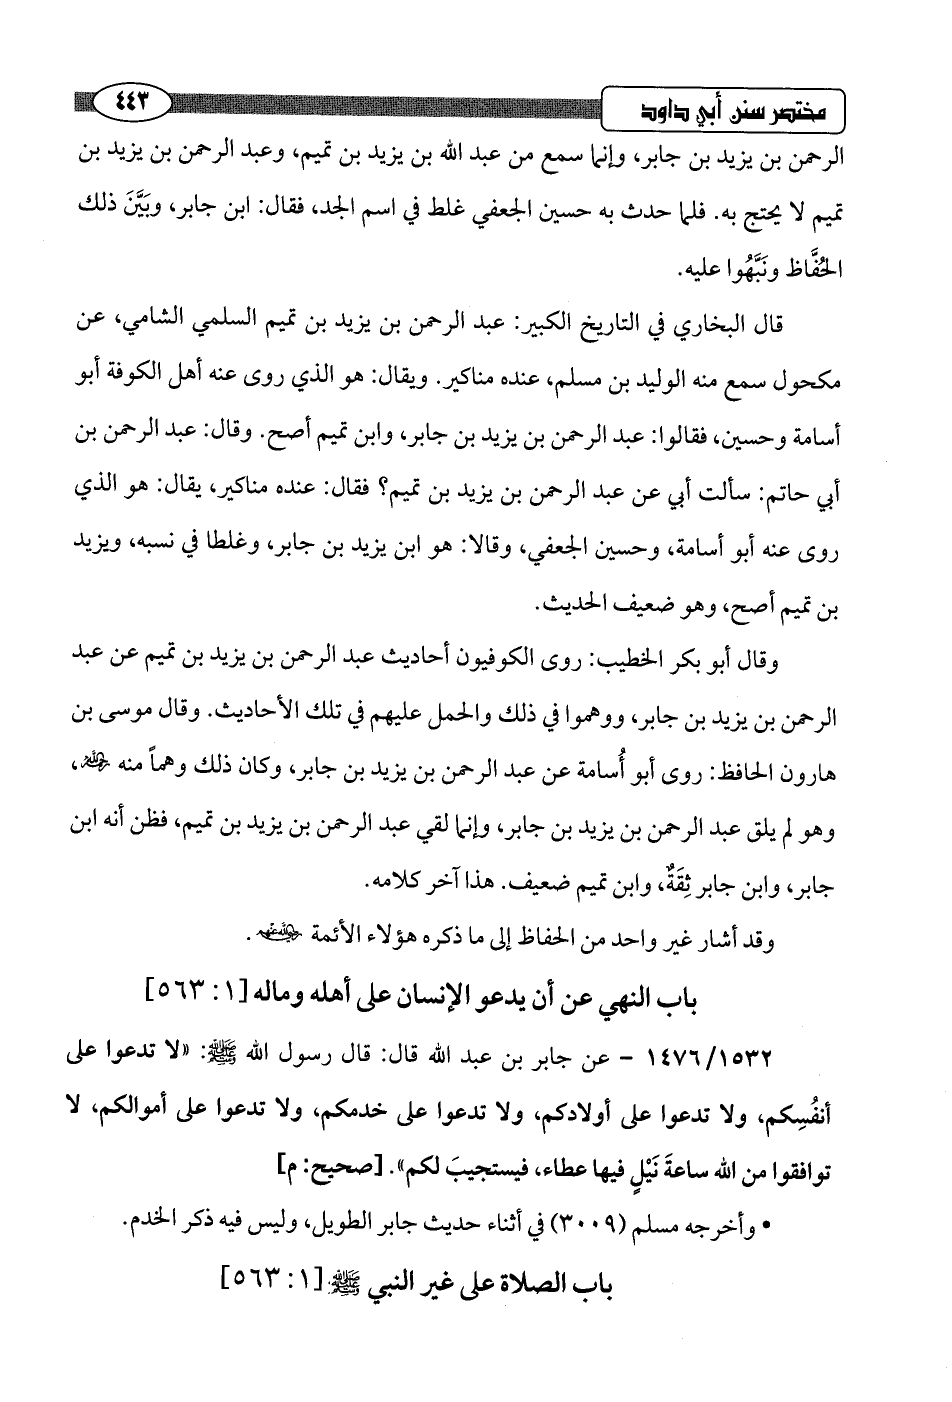 مختصر سنن أبي داود
٤٤٣
الرحمن بن يزيد بن جابر، وإنما سمع من عبد الله بن يزيد بن تميم، وعبد الرحمن بن يزيد بن
تميم لا يحتج به. فلما حدث به حسين الجعفي غلط في اسم الجد، فقال: ابن جابر، وبَيَّنَ ذلك
الحُفَّاظ ونَبَّهُوا عليه.
قال البخاري في التاريخ الكبير: عبد الرحمن بن يزيد بن تميم السلمي الشامي، عن
مكحول سمع منه الوليد بن مسلم، عنده مناكير. ويقال: هو الذي روى عنه أهل الكوفة أبو
أسامة وحسين، فقالوا: عبد الرحمن بن يزيد بن جابر، وابن تميم أصح. وقال: عبد الرحمن بن
أبي حاتم: سألت أبي عن عبد الرحمن بن يزيد بن تميم؟ فقال: عنده مناكير، يقال: هو الذي
روى عنه أبو أسامة، وحسين الجعفي، وقالا: هو ابن يزيد بن جابر، وغلطا في نسبه، ويزيد
بن تميم أصح، وهو ضعيف الحديث.
وقال أبو بكر الخطيب: روى الكوفيون أحاديث عبد الرحمن بن يزيد بن تميم عن عبد
الرحمن بن يزيد بن جابر، ووهموا في ذلك والحمل عليهم في تلك الأحاديث. وقال موسى بن
هارون الحافظ: روى أبو أُسامة عن عبد الرحمن بن يزيد بن جابر، وكان ذلك وهماً منه رحمه الله،
وهو لم يلق عبد الرحمن بن يزيد بن جابر، وإنما لقي عبد الرحمن بن يزيد بن تميم، فظن أنه ابن
جابر، وابن جابر ثِقَةٌ، وابن تميم ضعيف. هذا آخر كلامه.
وقد أشار غير واحد من الحفاظ إلى ما ذكره هؤلاء الأئمة .
باب النهي عن أن يدعو الإنسان على أهله وماله [١: ٥٦٣]
١٤٧٦/١٥٣٢ – عن جابر بن عبد الله قال: قال رسول الله ﷺ: «لا تدعوا على
أنفُسِكم، ولا تدعوا على أولادكم، ولا تدعوا على خدمكم، ولا تدعوا على أموالكم، لا
توافقوا من الله ساعةَ نَيْلٍ فيها عطاء، فيستجيبَ لكم». [صحيح: م]
• وأخرجه مسلم (٣٠٠٩) في أثناء حديث جابر الطويل، وليس فيه ذكر الخدم.
باب الصلاة على غير النبي ﷺ [١: ٥٦٣]